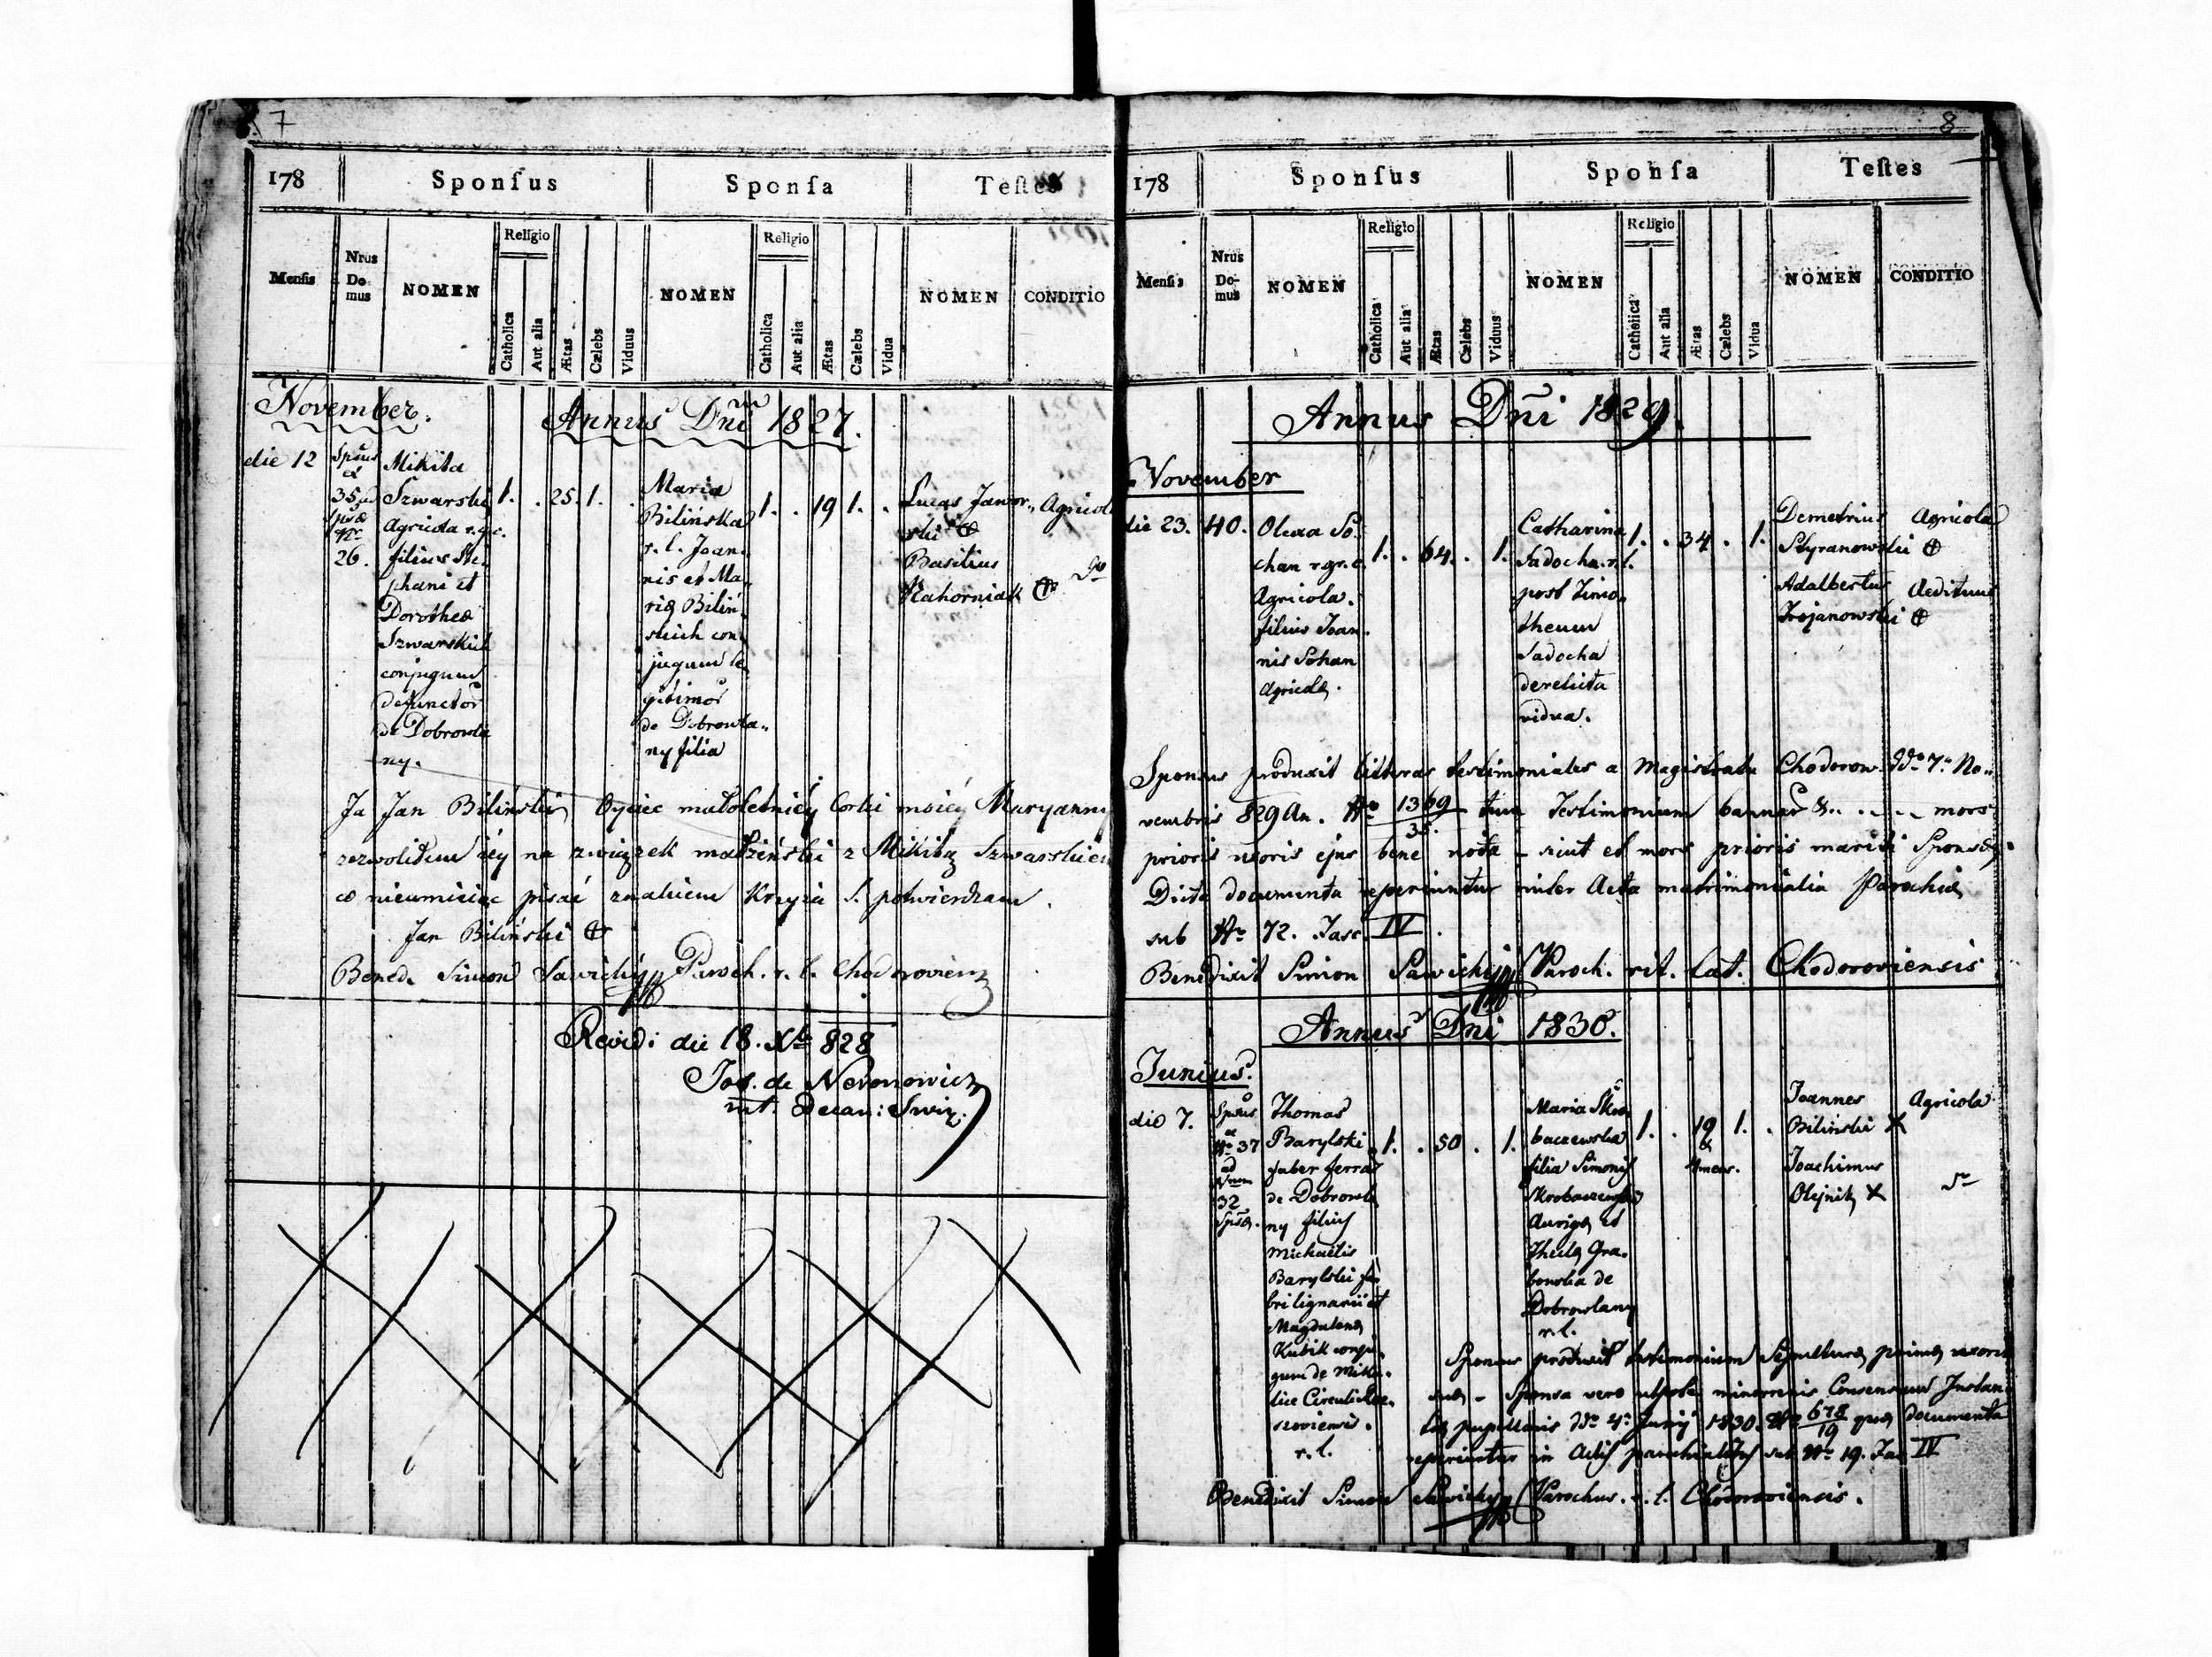 7
178
Sponſus
Sponſa
Teſtes
Menſis
Nrus Do- mus
NOMEN
Religio
Catholica
Aut alia
Ætas
Cælebs
Viduus
NOMEN
Religio
Catholica
Aut alia
Ætas
Cælebs
Vidua
NOMEN
CONDITIO
November.
Annus Dñi 1827.
die 12
35
26.
Mikita
Szwarski
Agricola r. g. c.
filius Ste-
phani et
Dorothea
Szwarskich
conjugum
defunctor
de Dobrowla
ny.
1. . 25. 1. .
Maria
Bilińska
r. l. Joan-
nis et Ma-
riæ Biliń-
skich con-
jugum le-
gitimor
de Dobrowla-
ny filia
1. . 19 1. .
Lucas Jawor-
ski
Basilius
Nahorniak
Agricola
Ja Jan Biliński Oyciec małoletniéy Corki moiéy Maryanny
zezwoliłem iéy na związek małżeński z Mikitą Szwarskiem
co nieumieiąc pisać znakiem Krzyża S. potwierdzam.
Jan Biliński
Bened. Simon Sawicki Paroch. r. l. Chodorovien
Revidi die 18. Xbr 828
Jos. de Neronowicz
Decan: Swirz.
8
178
Sponſus
Sponſa
Teſtes
Menſis
Nrus Do- mus
NOMEN
Religio
Catholica
Aut alia
Ætas
Cælebs
Viduus
NOMEN
Religio
Catholica
Aut alia
Ætas
Cælebs
Vidua
NOMEN
CONDITIO
Annus Dñi 1829.
November
die 23.
40.
Olexa So-
chan r. gr. c.
Agricola.
filius Joan-
nis Sohan
Agricolæ.
1. . 64. . 1.
Catharina
Sadocha r. l.
post Timo-
theum
Sadocha
derelicta
vidua.
1. . 34 . 1.
Demetrius
Styranowski
Adalbertus
Trojanowski
Agricola
Aedituus
Sponsus produxit litteras testimoniales a Magistratu Chodorow. ddo 7. No-
vembris 829 An. No 1369/35. tum Testimonium bannor &. mors
prioris uxoris ejus bene nota - sicut et mors prioris mariti Sponsæ.
Dicta documenta reperiuntur inter Acta matrimonialia Parochiæ
sub No 72. Fasc. IV.
Benedixit Simon Sawicki Paroch. rit. lat. Chodoroviensis
Annus Dñi 1830.
Junius.
die 7.
No 37
ad
32
Thomas
Barylski
faber ferrar
de Dobrowla
ny filius
Michaelis
Barylski fa-
bri lignarii et
Magdalenæ
Kubik conju-
gum de
Circuli
r. l.
1. . 50 . 1.
Maria Skro-
baczewska
filia Simonis
Skrobaczewski
Aurigæ et
Theclæ Gra-
bowska de
Dobrowlany
r. l.
1. . 19 1. .
& 4 mens.
Joannes
Biliński X
Joachimus
Olejnik X
Agricola
Sponsus produxit testimonium Sepulturæ primæ uxoris
suæ - Sponsa vero utpote minorennis Consensum Instan-
tiæ pupillaris ddo 4. Junij 1830. No 678/19 quæ documenta
reperiuntur in Actis parochialibus sub No 19. Fas IV
Benedixit Simon Sawicki Parochus r. l. Chodoroviensis.